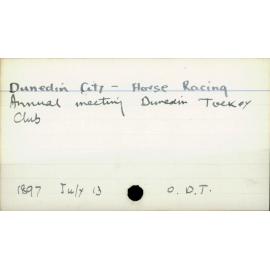 Dunedin City - Horse Racing
Annual meeting Dunedin Jockey
Club
1897 July 13 O.D.T.